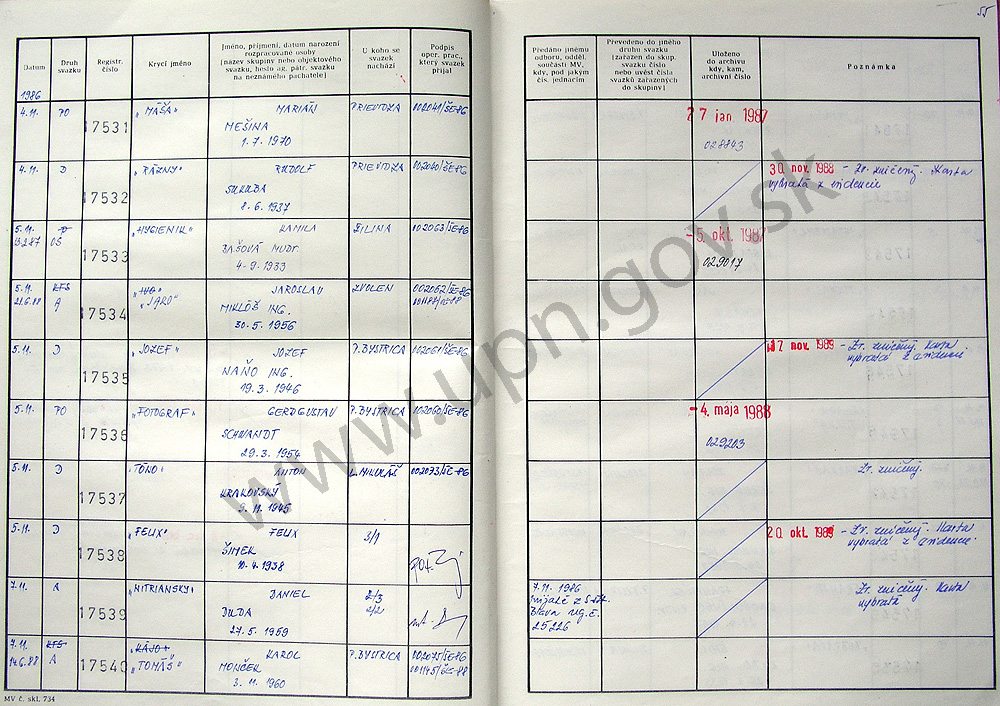 55
Datum
Druh svazku
Registr. číslo
Krycí jméno
Jméno, příjmení, datum narození
rozpracované osoby
(název skupiny nebo objektového
svazku, heslo ag. pátr. svazku
na neznámého pachatele)
U koho se
svazek
nachází
Podpis
oper. prac.,
který svazek
přijal
Předáno jinému
odboru, odděl.
součásti MV,
kdy, pod jakým
čís. jednacím
Převedeno do jiného
druhu svazku
(zařazen do skup.
svazku číslo
nebo uvést čísla
svazků zařazených
do skupiny)
Uloženo
do archivu
kdy, kam,
archivní číslo
Poznámka
1986
4.11. PO 17531 „MÁŠA" MARIÁN PRIEVIDZA 002041/ŠE-86 27 jan. 1987
MEŠINA
1.7.1970 028843
4.11. D 17532 „RÁZNY" RUDOLF PRIEVIDZA 002040/ŠE-86 30 nov. 1988 - Zv. zničený. Karta
vybratá z evidencie
8.6.1937
5.11. 17533 „HYGIENIK" KAMILA ŽILINA 002063/ŠE-86 -5. okt. 1987
OS BAŠOVÁ MUDr.
4.9.1933 029017
5.11. KTS 17534 JAROSLAV ZVOLEN 002062/ŠE-86
21.6.88 A „JARO" MIKLÓŠ ING.
30.5.1956
5.11. D 17535 „JOZEF" JOZEF P.BYSTRICA 002061/ŠE-86 17 nov. 1989 - Zv. zničený. Karta
NAŇO ING. vybratá z evidencie
19.3.1946
5.11. PO 17536 „FOTOGRAF" GERDGUSTAV P.BYSTRICA 002060/ŠE-86 -4. maja 1988
SCHWANDT
29.3.1954 029203
5.11. D 17537 „TÓNO" ANTON L.MIKULÁŠ 002073/ŠE-86 Zv. zničený.
KRAKOVSKÝ
9.11.1945
5.11. D 17538 „FELIX" FELIX 3/1 20 okt. 1989 - Zv. zničený. Karta
ŠIMEK vybratá z evidencie
10.4.1938
7.11. A 17539 „NITRIANSKY" DANIEL 2/3 7.11.1986 Zv. zničený. Karta
DUDA 2/2 vybratá
27.5.1959 25226
7.11. KTS 17540 „KAJO" KAROL P.BYSTRICA 002075/ŠE-86
14.6.88 A „TOMÁŠ" MONČEK 001145/ŠE-88
3.11.1960
MV č. skl. 734
www.upn.gov.sk